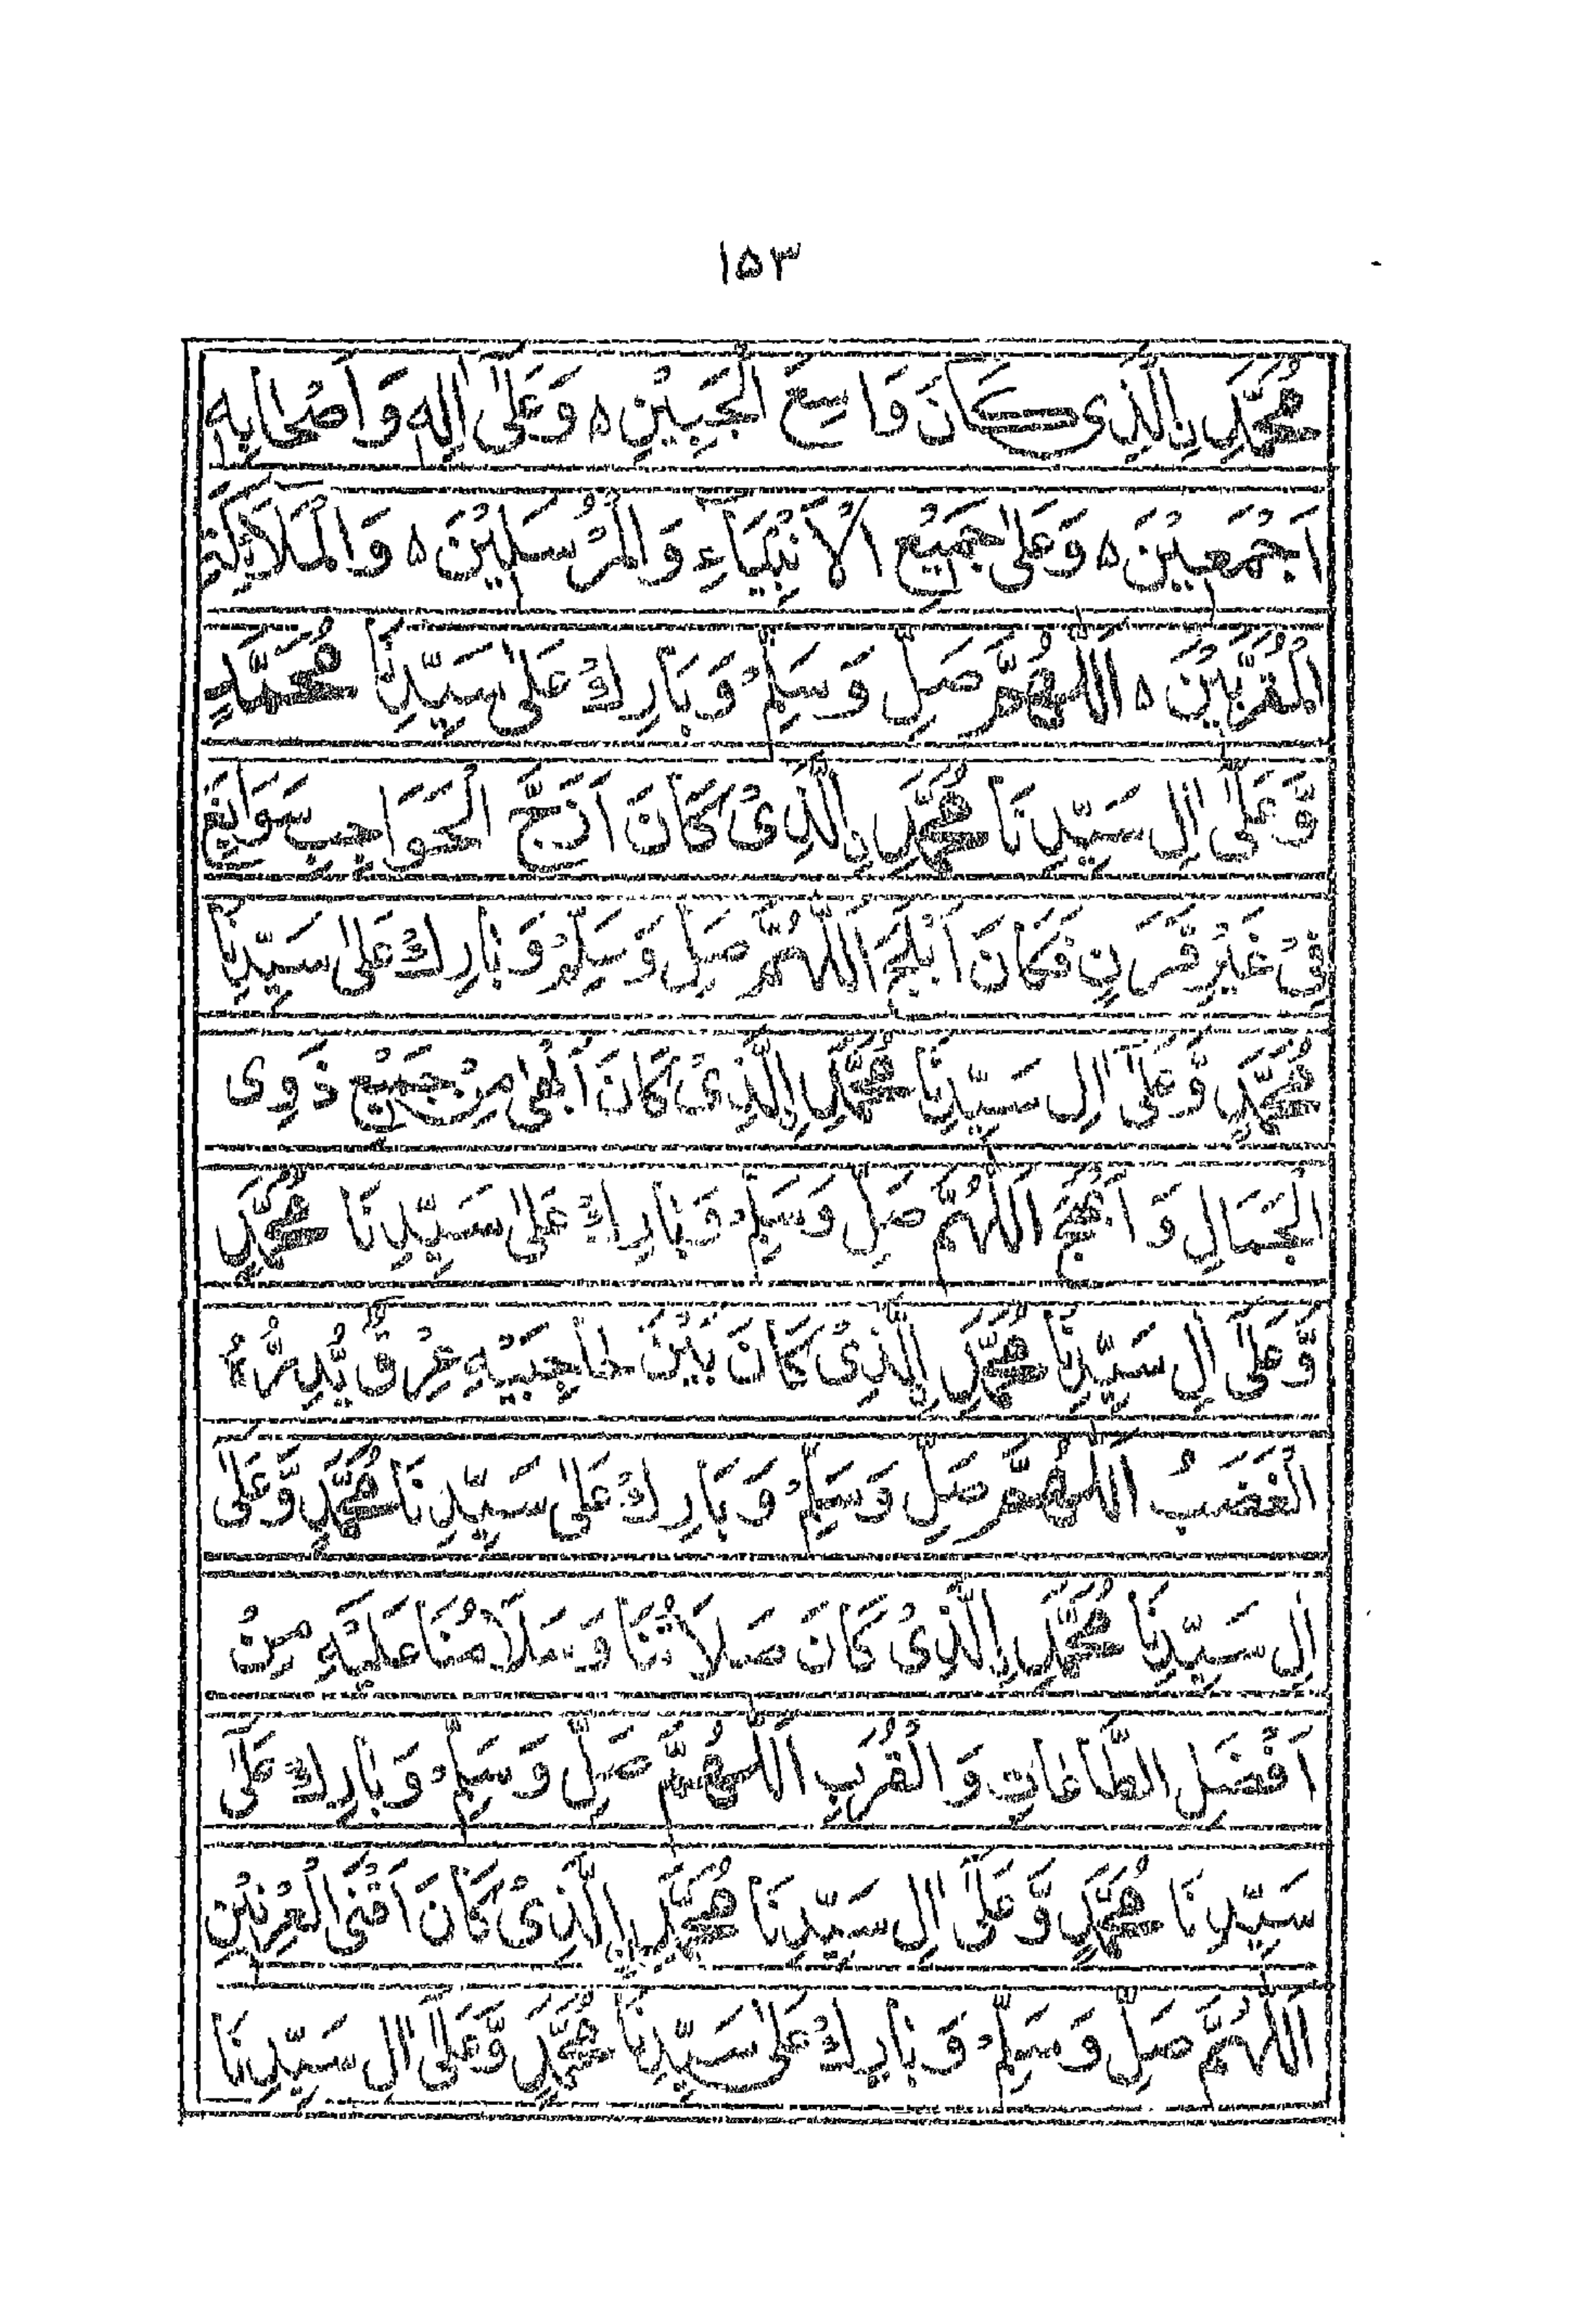 ۱۵۳
مُحَمَّدِنِ الَّذِی کَانَ وَاسِعَ الْجَبِیْنِ ہ وَعَلٰۤی اٰلِہٖ وَاَصْحَابِہٖ
اَجْمَعِیْنَ ہ وَعَلٰی جَمِیْعِ الْاَنْبِیَآءِ وَالْمُرْسَلِیْنَ ہ وَالْمَلَآئِکَۃِ
الْمُقَرَّبِیْنَ ہ اَللّٰھُمَّ صَلِّ وَسَلِّمْ وَبَارِكْ عَلٰی سَیِّدِنَا مُحَمَّدٍ
وَّعَلٰۤی اٰلِ سَیِّدِنَا مُحَمَّدِنِ الَّذِیْ کَانَ اَزَجَّ الْحَوَاجِبِ سَوَابِغَ
فِیْ غَیْرِ قَرَنٍ فَکَانَ اَبْلَجَ اَللّٰھُمَّ صَلِّ وَسَلِّمْ وَبَارِكْ عَلٰی سَیِّدِنَا
مُحَمَّدٍ وَّعَلٰۤی اٰلِ سَیِّدِنَا مُحَمَّدِنِ الَّذِیْ کَانَ اَبْھٰی مِنْ جَمِیْعِ ذَوِی
الْجَمَالِ وَ اَبْھَجَ اَللّٰھُمَّ صَلِّ وَسَلِّمْ وَبَارِكْ عَلٰی سَیِّدِنَا مُحَمَّدٍ
وَّعَلٰۤی اٰلِ سَیِّدِنَا مُحَمَّدِنِ الَّذِیْ کَانَ بَیْنَ حَاجِبَیْہِ عِرْقٌ یُّدِرُّہُ
الْغَضَبُ اَللّٰھُمَّ صَلِّ وَسَلِّمْ وَبَارِكْ عَلٰی سَیِّدِنَا مُحَمَّدٍ وَّعَلٰۤی
اٰلِ سَیِّدِنَا مُحَمَّدِنِ الَّذِیْ کَانَ صَلَاتُنَا وَسَلَامُنَا عَلَیْہِ مِنْ
اَفْضَلِ الطَّاعَاتِ وَالْقُرَبِ اَللّٰھُمَّ صَلِّ وَسَلِّمْ وَبَارِكْ عَلٰی
سَیِّدِنَا مُحَمَّدٍ وَّعَلٰۤی اٰلِ سَیِّدِنَا مُحَمَّدِنِ الَّذِیْ کَانَ اَقْنَی الْعِرْنِیْنِ
اَللّٰھُمَّ صَلِّ وَسَلِّمْ وَبَارِكْ عَلٰی سَیِّدِنَا مُحَمَّدٍ وَّعَلٰۤی اٰلِ سَیِّدِنَا